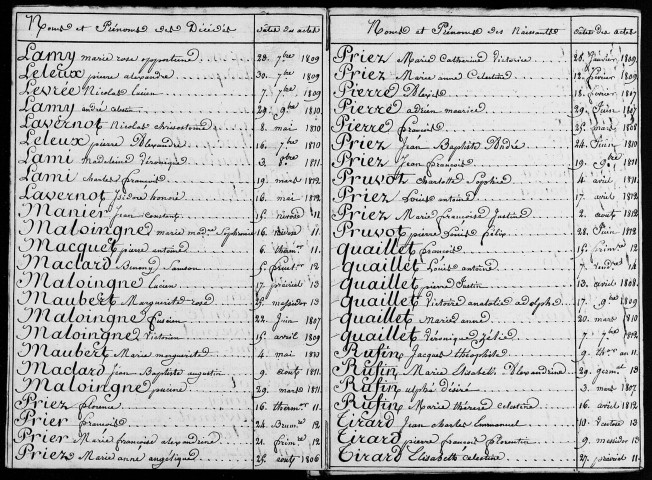 Noms et Prénoms des Décédés Dates des actes
Lamy marie rose opportune 28. 7bre 1809
Leleux pierre alexandre 30. 7bre 1809
Levrée Nicolas lucien 7. 7bre 1809
Lamy andré celestin 29. 9bre 1810
Lavernot Nicolas chrisostome 8. mai 1810
Leleux pierre Alexandre 16. 7bre 1810
Lami Madeleine Véronique 3. 8bre 1811
Lami charles françois 19. mars 1812
Lavernot Isidore honoré 16. mai 1812
Manier jean constant 15. nivose 11
Maloingne marie mad.ne Sophronie 16. 11
Macquet pierre antoine 6. therm.or 11
Maclard Benony Sanson 5. fruct.or 12
Maloingne Lucien 17. prairial 13
Maubert Marguerite rose 25. messidor 13
Maloingne Lucien 22. Juin 1807
Maloingne Victorine 15. avril 1809
Maubert Marie marguerite 4. mai 1811
Maclard Jean Baptiste augustin 9. aout 1811
Maloingne 29. mars 1811
Priez florence 16. therm.or 11
Prier françois 24. Brum.re 12
Prier Marie françoise alexandrine 21. frim.re 12
Priez Marie anne angélique 25. aout 1806
Noms et Prénoms des Naissants Dates des actes
Priez Marie Catherine Victoire 28. Janvier 1809
Priez Marie anne Celestine 12. février 1809
Pierre Alexis 18. février 1807
Pierre adrien maurice 29. Juin 1807
Pierre françois 25. mars 1808
Priez Jean Baptiste André 24. Juin 1810
Priez Jean françois 19. 9bre 1811
Pruvot charlotte Sophie 4. avril 1811
Priez Louis antoine 17. avril 1812
Priez Marie françoise Justine 2. aout 1812
Pruvot pierre Louis félix 28. Juin 1812
Quaillet françois 15. frim.re 12
Quaillet Louis antoine 7. vend.re 14
Quaillet pierre Justin 13. avril 1808
Quaillet Victoire anatolie adolphe 17. 9bre 1809
Quaillet Marie anne 20. mars 1810
Quaillet Véronique Zélie 7. 7bre 1812
Rufin Jacques théophile 9. ther. an 11
Rufin Marie Elisabeth Alexandrine 29. germ.al 13
Rufin ulphe désiré 3. mars 1807
Rufin Marie thérese celestine 16. avril 1812
Tirard Jean charles Emmanuel 10. 13
Tirard pierre françois florentin 9. messidor 13
Tirard Elisabeth celestine 27. prairial 11